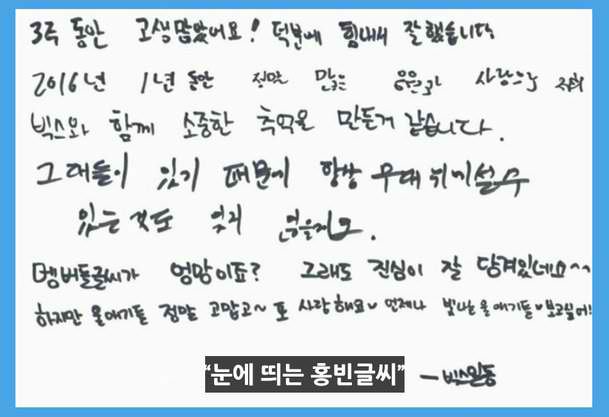 3주 동안 고생많았어요! 덕분에 힘내서 잘했습니다
2016년 1년 동안 정말 많은 응원과 사랑으로 저희
빅스와 함께 소중한 추억을 만든거 같습니다.
그대들이 있기 때문에 항상 무대 위에 설 수
있는 것도 잊지 않을게요.
멤버들글씨가 엉망이죠? 그래도 진심이 잘 담겨있네요~~
하지만 울애기들 정말 고맙고~ 또 사랑해요♥ 언제나 빛나는 울애기들♥보고싶어!
"눈에 띄는 홍빈글씨"
-빅스일동